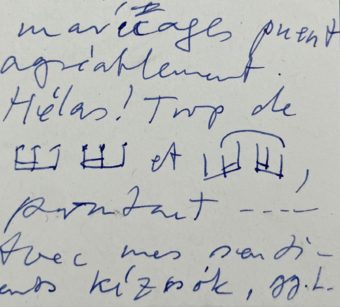 marécages puent
agréablement.
Hélas! Trop de
et ,
pourtant ----
Avec mes senti-
ents gy.L.